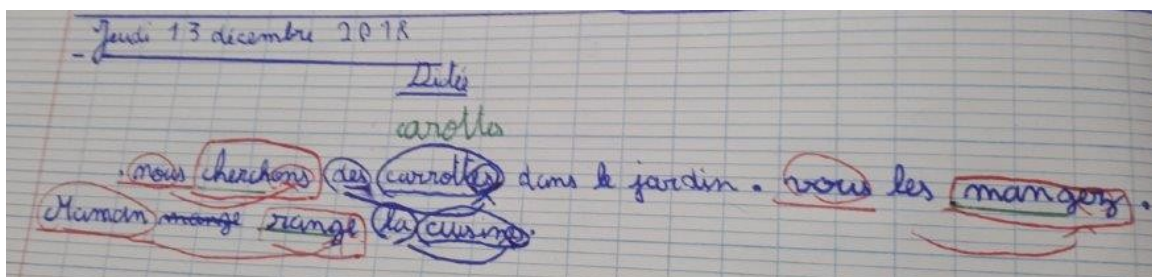 Jeudi 13 décembre 2018
Dictée
carottes
. nous cherchons des carrottes dans le jardin. vous les mangez.
Maman mange range la cuisine.